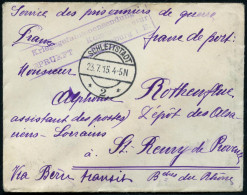 Service des prisonniers de guerre
Franz. franc de port.
Kriegsgefangenensendung
GEPRÜFT
SCHLETTSTADT
23.7.15.4-5N
* 2 *
Monsieur
Alphonse Rothenflue
assistant des postes Dépôt des Alsa
ciens-Lorrains
à St. Remy de Provence
Via Bern transit Bches du Rhône